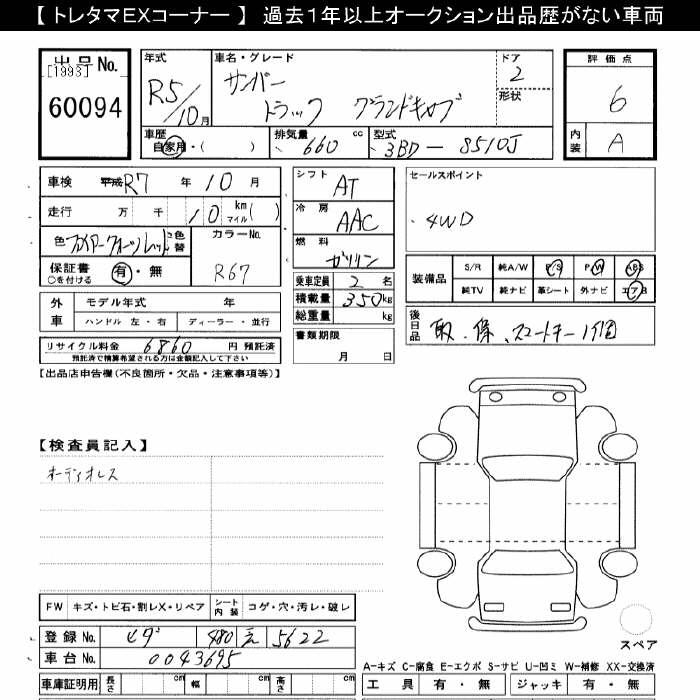 【 トレタマEXコーナー 】 過去１年以上オークション出品歴がない車両
出品 No.
[1993]
60094
年式
R5/10月
車名・グレード
サンバー
トラック グランドキャブ
ドア
2
形状
評価点
6
内装
A
車歴
自家用・( )
排気量 cc
660
型式
3BD - S510J
車検 平成R7 年 10 月
走行 万 千 10 km マイル ( )
色 色替
カラーNo.
R67
保証書 有・無
○を付ける
外車
モデル年式 年
ハンドル 左・右 ディーラー・並行
リサイクル料金 6860 円 預託済
預託済で精算希望される方は金額記入して下さい
シフト
AT
冷房
AAC
燃料
ガソリン
乗車定員 2 名
積載量 350 kg
総重量 kg
書類期限
月 日
セールスポイント
4WD
装備品
S/R 純A/W P/S P/W ABS
純TV 純ナビ 革シート 外ナビ エアB
後日品
取、保、スマートキー1個
【出品店申告欄(不良箇所・欠品・注意事項等)】
【検査員記入】
オーディオレス
FW キズ・トビ石・割レX・リペア シート内装 コゲ・穴・汚レ・破レ
登録No. 480 え 5622
車台No. 0043695
車庫証明用 長さ cm 幅 cm 高さ cm
スペア
A-キズ C-腐食 E-エクボ S-サビ U-凹ミ W-補修 XX-交換済
工具 有・無 ジャッキ 有・無